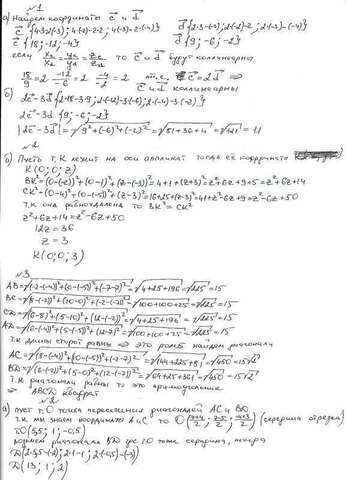 №1
а) Найдем координаты c⃗ и d⃗
c⃗ {4·3-2(-3); 4(-2)-2·2; 4(-3)-2·(-4)} d⃗ {2·3-(-3); 2·(-2)-2; 2·(-3)-(-4)}
c⃗ {18; -12; -4} d⃗ {9; -6; -2}
если то c⃗ и d⃗ будут коллинеарны
18/9 = 2 -12/-6 = 2 -4/-2 = 2 т.е. c⃗ = 2d⃗ ⇒
c⃗ и d⃗ коллинеарны
б) 2c⃗-3d⃗ {2·18-3·9; 2·(-12)-3·(-6); 2·(-4)-3·(-2)}
2c⃗-3d⃗ {9; -6; -2}
|2c⃗-3d⃗| = √9²+(-6)²+(-2)² = √81+36+4 = √121 = 11
№2
б) Пусть т. K лежит на оси аппликат тогда её координаты
K(0; 0; z)
BK² = (0-(-2))²+(0-1)²+(z-(-3))² = 4+1+(z+3)² = z²+6z+9+5 = z²+6z+14
CK² = (0-4)²+(0-(-5))²+(z-3)² = 16+25+(z-3)² = 41+z²-6z+9 = z²-6z+50
т.к она равноудалена то BK² = CK²
z²+6z+14 = z²-6z+50
12z = 36
z = 3
K(0; 0; 3)
№3
AB = √(-2-(-4))²+(0-(-5))²+(-7-7)² = √4+25+196 = √225 = 15
BC = √(8-(-2))²+(10-0)²+(-2-(-7))² = √100+100+25 = √225 = 15
CD = √(6-8)²+(5-10)²+(12-(-2))² = √4+25+196 = √225 = 15
AD = √(6-(-4))²+(5-(-5))²+(12-7)² = √100+100+25 = √225 = 15
т.к длины сторон равны ⇒ это ромб найдем диагонали
AC = √(8-(-4))²+(10-(-5))²+(-2-7)² = √144+225+81 = √450 = 15√2
BD = √(6-(-2))²+(5-0)²+(12-(-7))² = √64+25+361 = √450 = 15√2
т.к диагонали равны то это прямоугольник
⇒ ABCD квадрат
№2
а) пуст т.O точка пересечения диагоналей AC и BD
т.к мы знаем координаты A и C то O (середина отрезка)
т.O(5,5; 1; -0,5)
диагонали BD где т.O тоже середина, тогда
D(2·5,5-(-2); 2·1-1; 2·(-0,5)-(-3))
D(13; 1; 2)